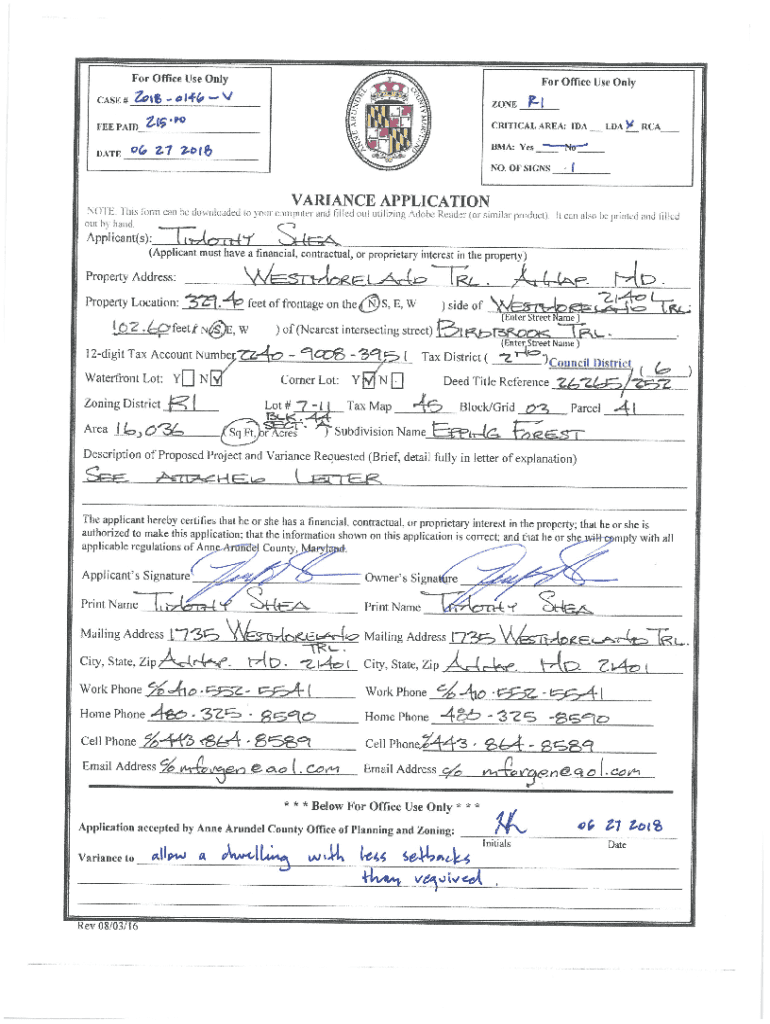 For Office Use Only
CASE # 2018-0146-V
FEE PAID 215.00
DATE 06 27 2018
ANNE ARUNDEL COUNTY MARYLAND
For Office Use Only
ZONE R1
CRITICAL AREA: IDA ___ LDA X RCA ___
BMA: Yes ___ No ___
NO. OF SIGNS 1
VARIANCE APPLICATION
NOTE: This form can be downloaded to your computer and filled out utilizing Adobe Reader (or similar product). It can also be printed and filled
out by hand.
Applicant(s): TIMOTHY SHEA
(Applicant must have a financial, contractual, or proprietary interest in the property)
Property Address: WESTMORELAND TRL. MD.
21401
Property Location: 329.40 feet of frontage on the (N) S, E, W ) side of WESTMORELAND TRL.
(Enter Street Name )
102.60 feet N (S) E, W ) of (Nearest intersecting street) BIRDBROOK TRL.
(Enter Street Name )
12-digit Tax Account Number 2240-9008-3951 Tax District ( 2ND ) Council District ( 6 )
Waterfront Lot: Y N ✓ Corner Lot: Y ✓ N Deed Title Reference 26265/252
Zoning District R1 Lot # 7-11 Tax Map 45 Block/Grid 03 Parcel 41
BLK. SECT. A
Area 16,036 (Sq Ft, or Acres ) Subdivision Name EPPING FOREST
Description of Proposed Project and Variance Requested (Brief, detail fully in letter of explanation)
SEE ATTACHED LETTER
The applicant hereby certifies that he or she has a financial, contractual, or proprietary interest in the property; that he or she is
authorized to make this application; that the information shown on this application is correct; and that he or she will comply with all
applicable regulations of Anne Arundel County, Maryland.
Applicant's Signature Owner's Signature
Print Name TIMOTHY SHEA Print Name TIMOTHY SHEA
Mailing Address 1735 WESTMORELAND TRL. Mailing Address 1735 WESTMORELAND TRL.
City, State, Zip MD. 21401 City, State, Zip MD 21401
Work Phone c/o 410.552-5541 Work Phone c/o 410.552-5541
Home Phone 480-325-8590 Home Phone 480-325-8590
Cell Phone c/o 443.864-8589 Cell Phone c/o 443.864-8589
Email Address c/o mforgen@aol.com Email Address c/o mforgen@aol.com
* * * Below For Office Use Only * * *
Application accepted by Anne Arundel County Office of Planning and Zoning: 06 27 2018
Initials Date
Variance to allow a dwelling with less setbacks
than required.
Rev 08/03/16